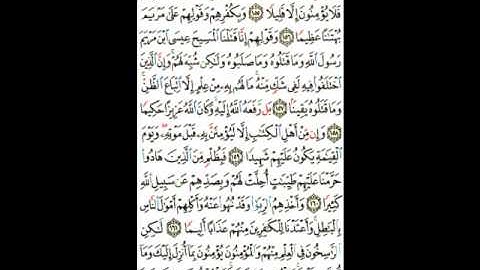 فَلَا يُؤْمِنُونَ إِلَّا قَلِيلًا ١٥٥ وَبِكُفْرِهِمْ وَقَوْلِهِمْ عَلَىٰ مَرْيَمَ
بُهْتَٰنًا عَظِيمًا ١٥٦ وَقَوْلِهِمْ إِنَّا قَتَلْنَا ٱلْمَسِيحَ عِيسَى ٱبْنَ مَرْيَمَ
رَسُولَ ٱللَّهِ وَمَا قَتَلُوهُ وَمَا صَلَبُوهُ وَلَٰكِن شُبِّهَ لَهُمْ ۚ وَإِنَّ ٱلَّذِينَ
ٱخْتَلَفُوا۟ فِيهِ لَفِى شَكٍّ مِّنْهُ ۚ مَا لَهُم بِهِۦ مِنْ عِلْمٍ إِلَّا ٱتِّبَاعَ ٱلظَّنِّ ۚ
وَمَا قَتَلُوهُ يَقِينًۢا ١٥٧ بَل رَّفَعَهُ ٱللَّهُ إِلَيْهِ ۚ وَكَانَ ٱللَّهُ عَزِيزًا حَكِيمًا
١٥٨ وَإِن مِّنْ أَهْلِ ٱلْكِتَٰبِ إِلَّا لَيُؤْمِنَنَّ بِهِۦ قَبْلَ مَوْتِهِۦ ۖ وَيَوْمَ
ٱلْقِيَٰمَةِ يَكُونُ عَلَيْهِمْ شَهِيدًا ١٥٩ فَبِظُلْمٍ مِّنَ ٱلَّذِينَ هَادُوا۟
حَرَّمْنَا عَلَيْهِمْ طَيِّبَٰتٍ أُحِلَّتْ لَهُمْ وَبِصَدِّهِمْ عَن سَبِيلِ ٱللَّهِ
كَثِيرًا ١٦٠ وَأَخْذِهِمُ ٱلرِّبَوٰا۟ وَقَدْ نُهُوا۟ عَنْهُ وَأَكْلِهِمْ أَمْوَٰلَ ٱلنَّاسِ
بِٱلْبَٰطِلِ ۚ وَأَعْتَدْنَا لِلْكَٰفِرِينَ مِنْهُمْ عَذَابًا أَلِيمًا ١٦١ لَّٰكِنِ
ٱلرَّٰسِخُونَ فِى ٱلْعِلْمِ مِنْهُمْ وَٱلْمُؤْمِنُونَ يُؤْمِنُونَ بِمَآ أُنزِلَ إِلَيْكَ وَمَآ